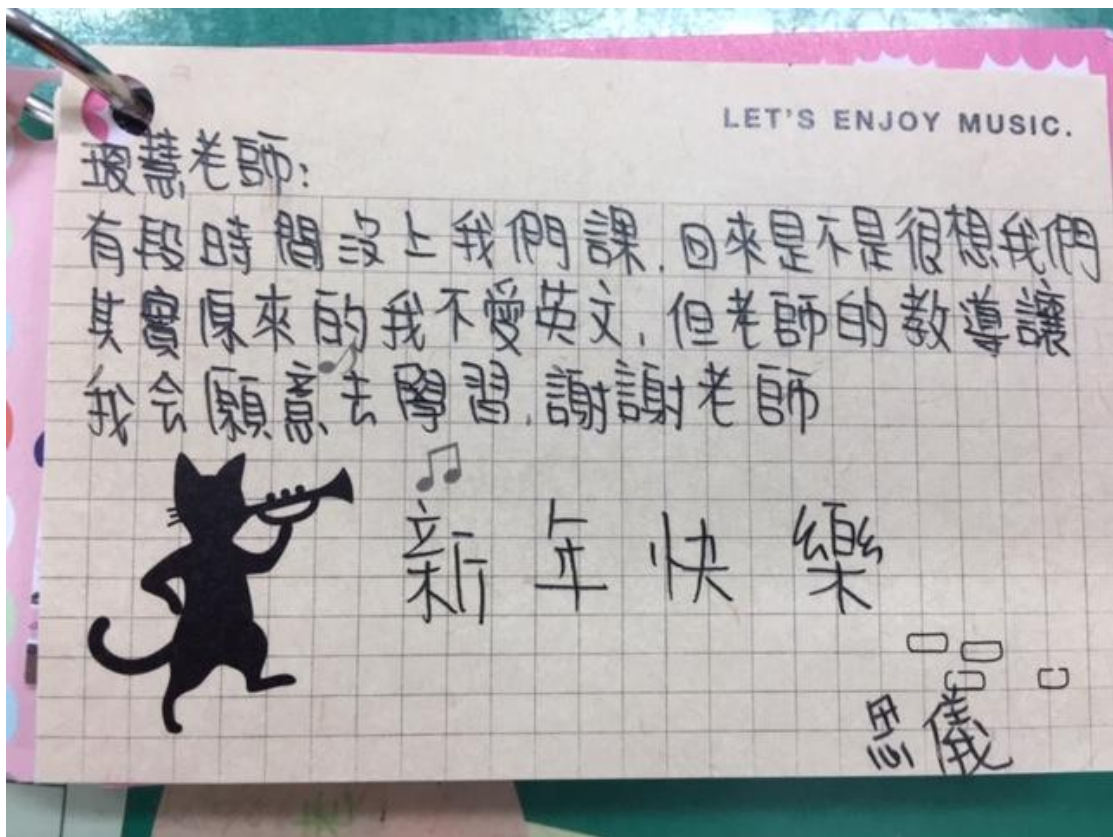 LET'S ENJOY MUSIC.
瓊慧老師:
有段時間沒上我們課,回來是不是很想我們
其實原來的我不愛英文,但老師的教導讓
我会願意去學習,謝謝老師
新年快樂
思儀